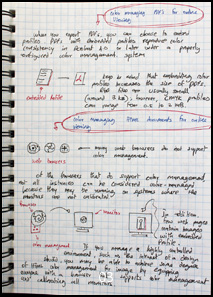 color managing PDFs for online
viewing
when you export PDFs, you can choose to embed
profiles. PDFs with embedded profiles reproduce color
consistency in Acrobat 4.0 or later under a properly
configured color management system.
keep in mind that embedding color
profiles increases the size of PDFs.
files are usually small
(around 3 KB); however, CMYK profiles
can range
embedded profile
color managing HTML documents for online
viewing
many web browsers do not support
color management.
web browsers
of the browsers that do support color management,
not all instances can be considered color-managed
because they may be running on systems where the
monitors are not calibrated.
browsers
monitor
few
web pages contain
images
with embedded
profile.
color management
If you manage a highly controlled
environment, such as the intranet of a design
studio, you may be able to achieve some degree
of HTML color management for images by equipping
everyone with a browser that supports color management
and calibrating all monitors.